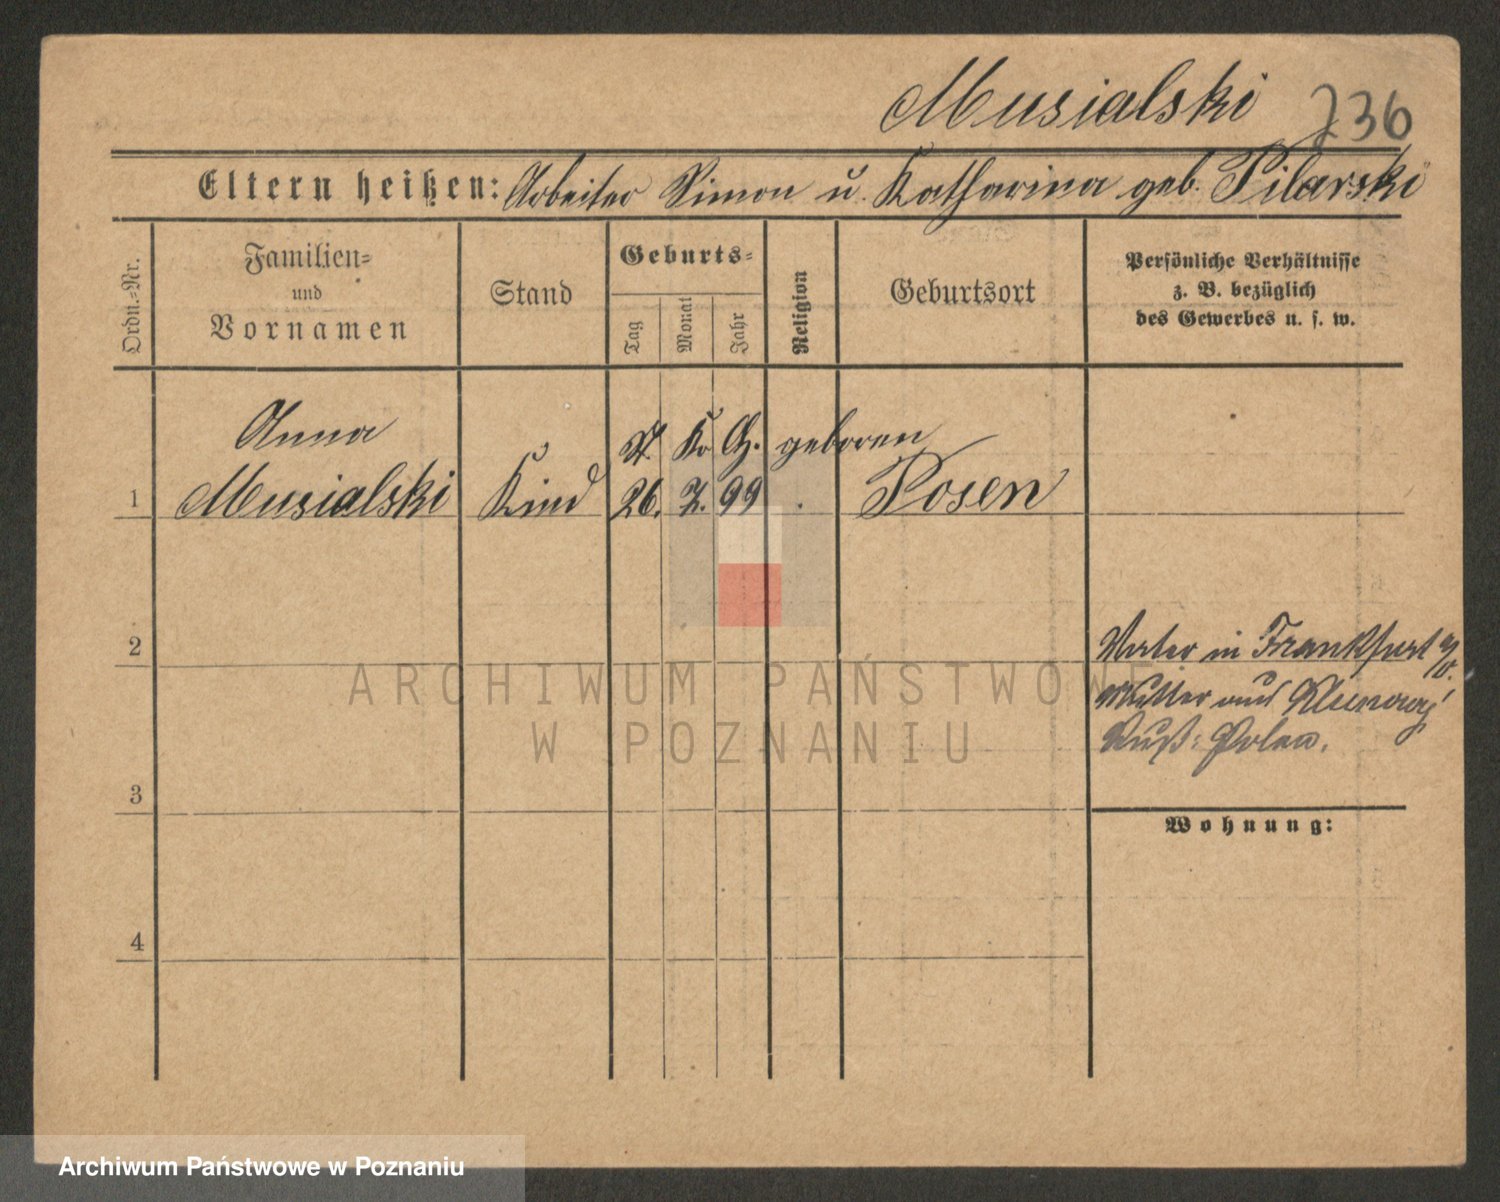 Musialski 236
Eltern heißen: Arbeiter Simon u. Katharina geb. Pilarski
Ordn.=Nr.
Familien=
und
Vornamen
Stand
Geburts=
Tag
Monat
Jahr
Religion
Geburtsort
Persönliche Verhältnisse
z. B. bezüglich
des Gewerbes u. s. w.
Anna
geboren
1 Musialski Kind 26. 7. 99 Posen
2
3
4
Vater in Frankfurt a/O.
Mutter aus
Russ: Polen.
Wohnung:
ARCHIWUM PAŃSTWOWE
W POZNANIU
Archiwum Państwowe w Poznaniu